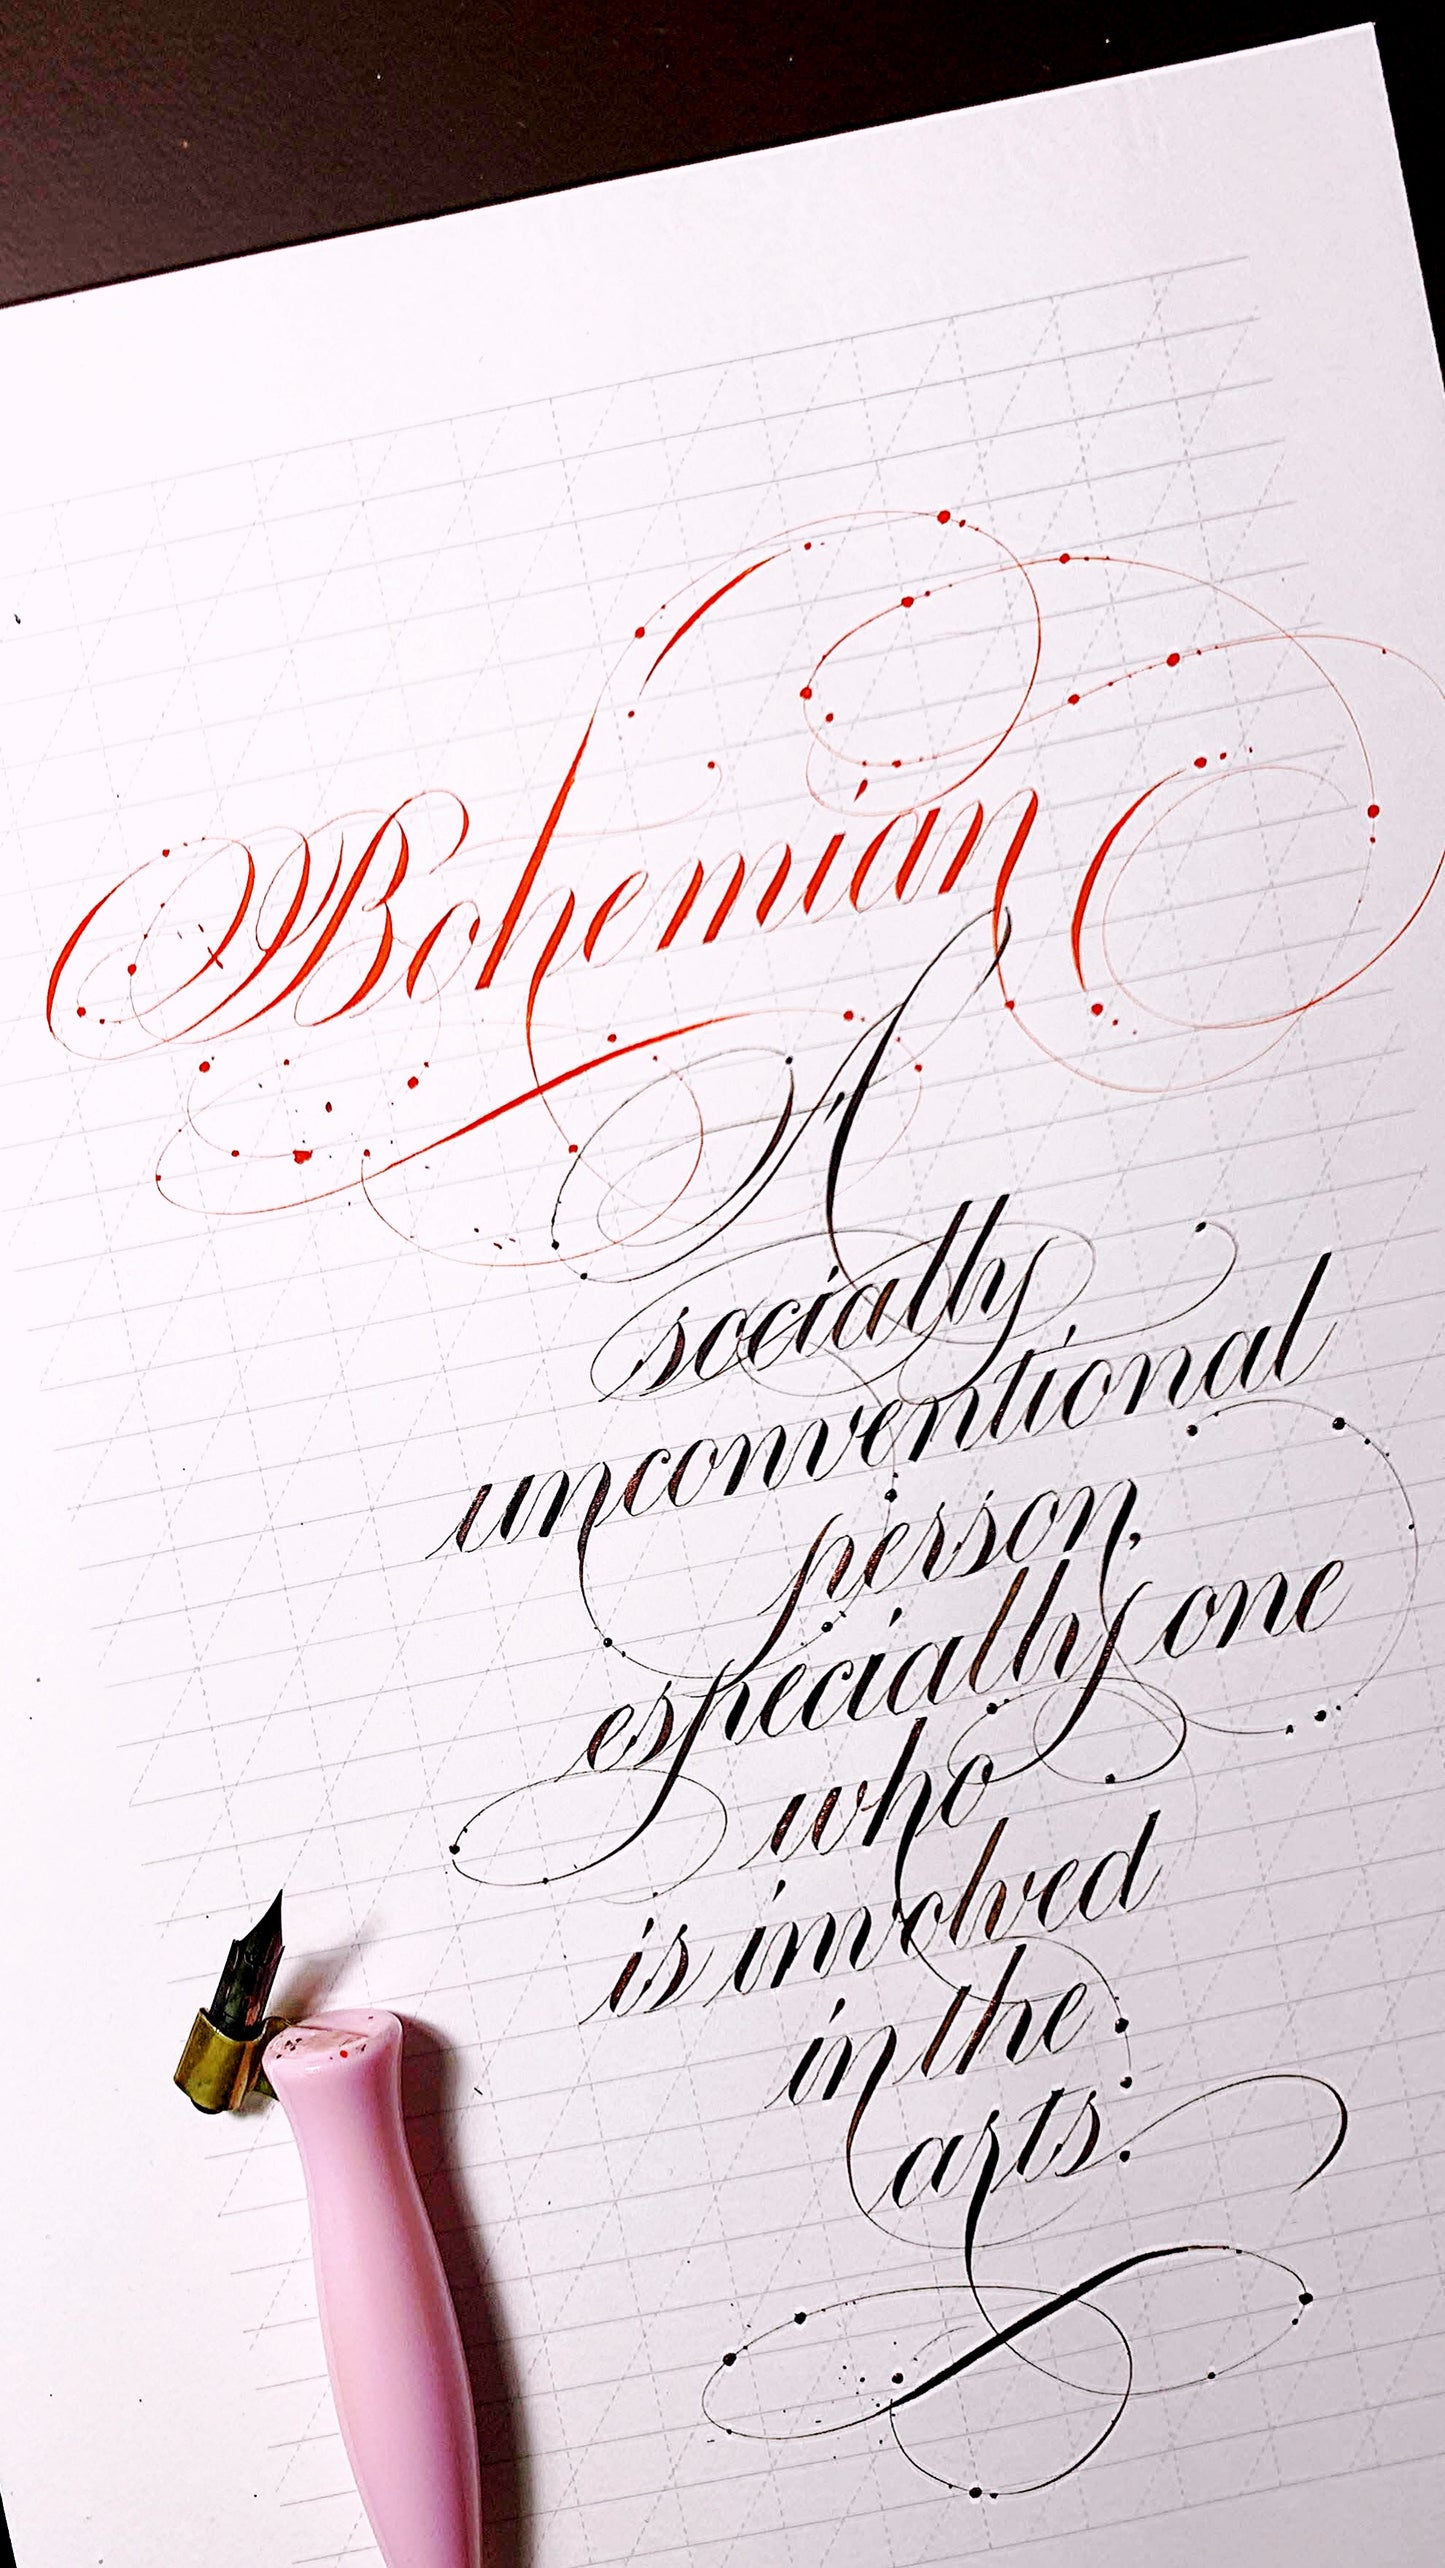 Bohemian
A
socially
unconventional
person,
especially one
who
is involved
in the
arts.